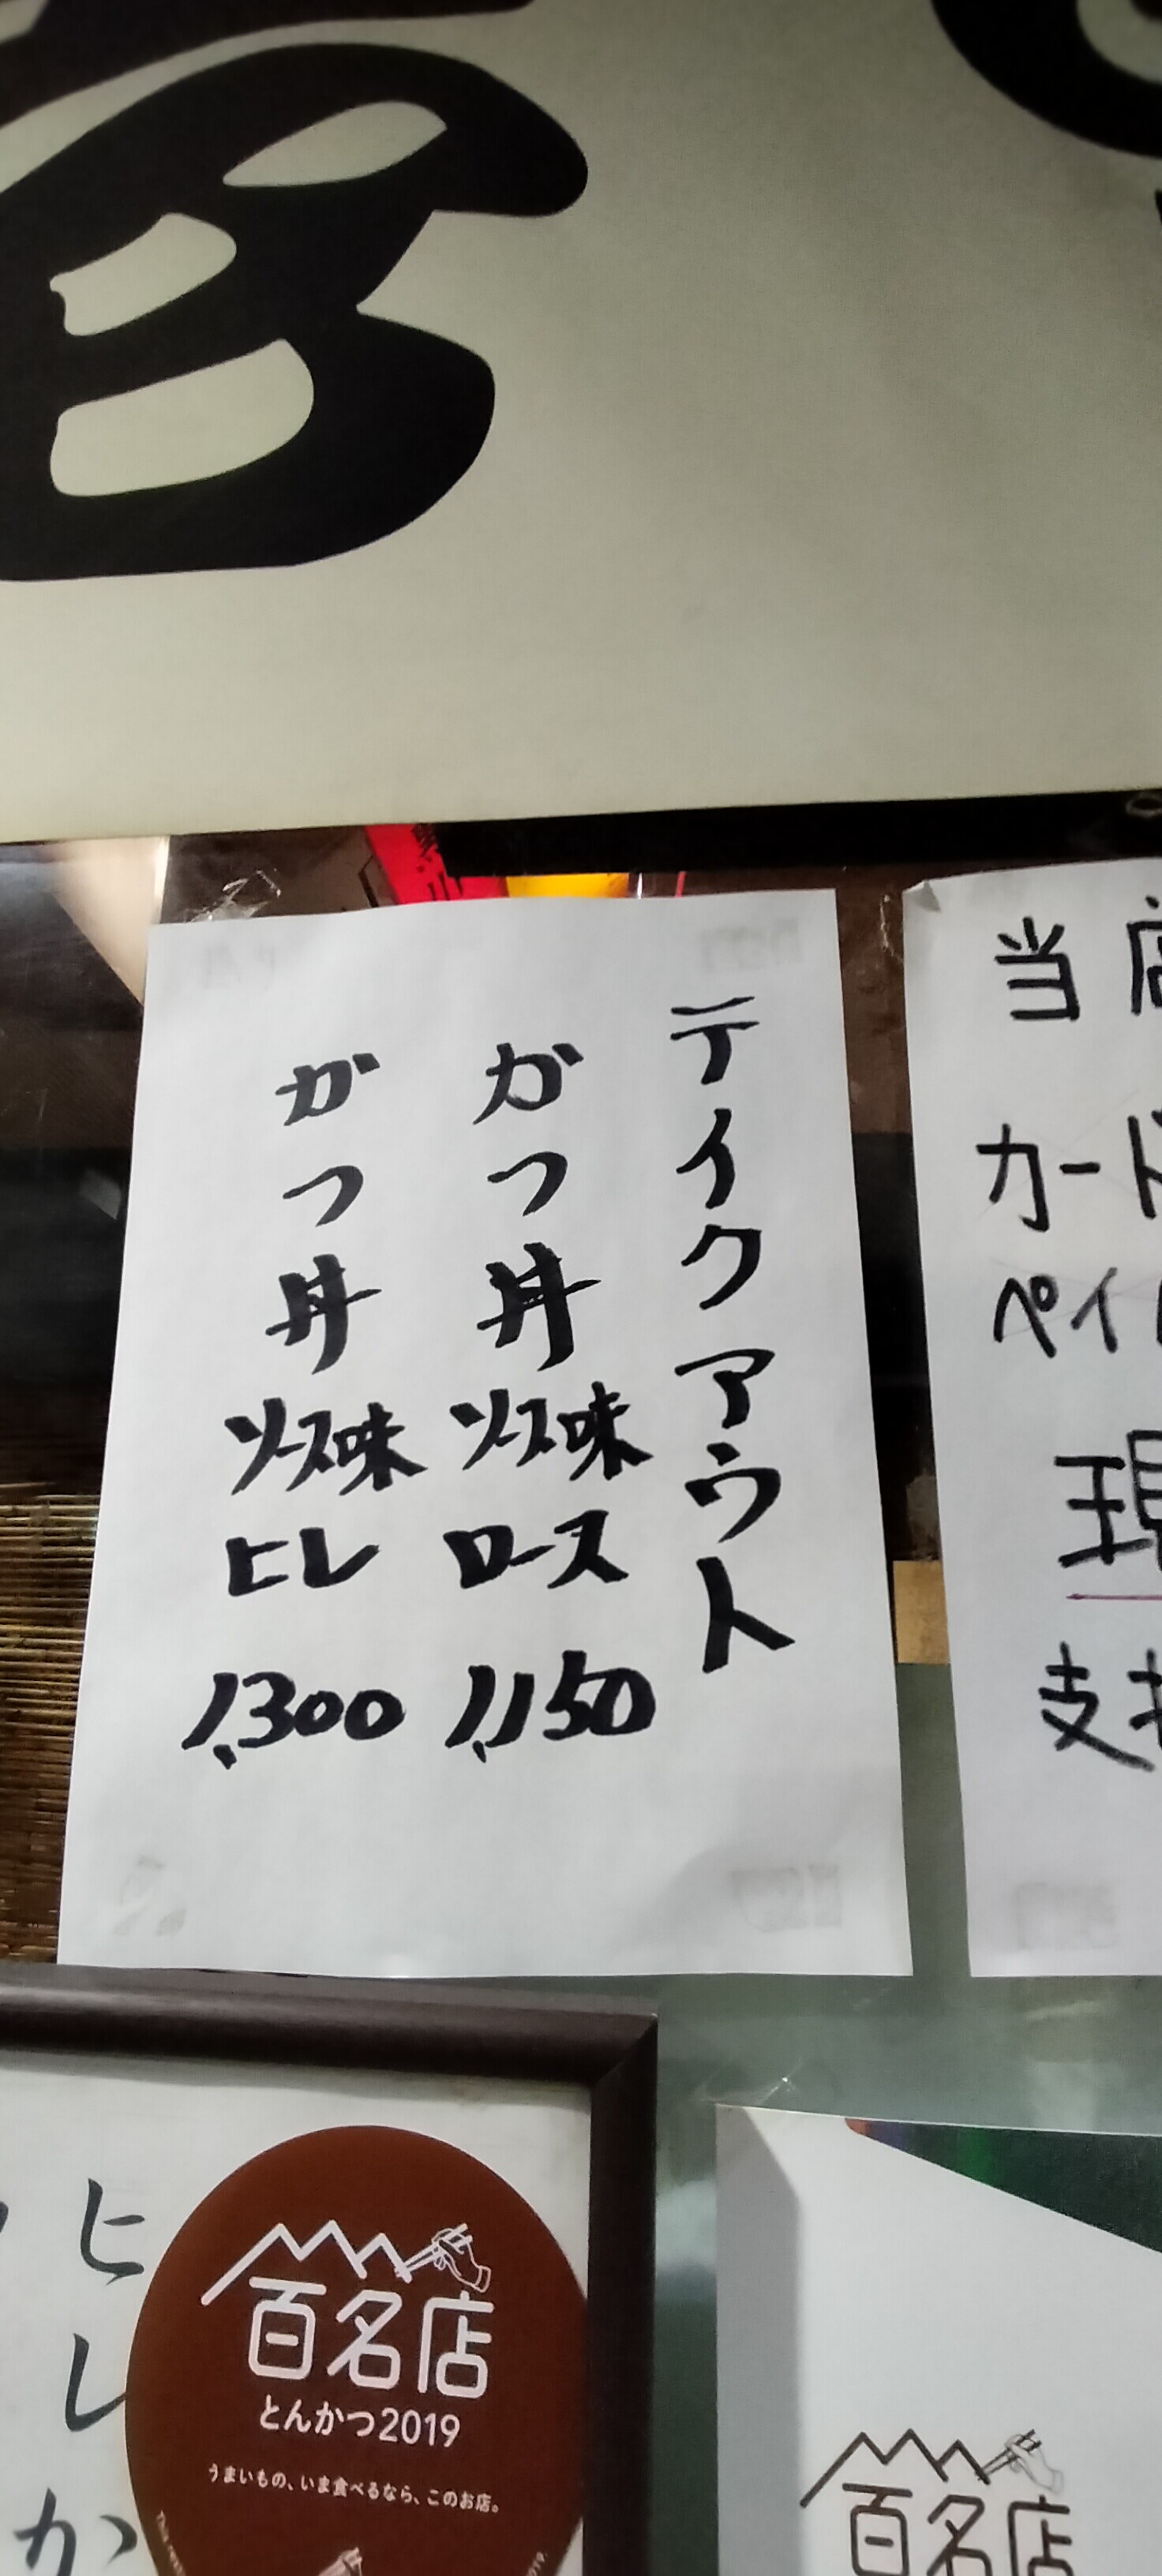 テイクアウト
かつ丼ソース味ロース 1,150
かつ丼ソース味ヒレ 1,300
当店
カード
ペイ
現
支払
ヒレか
百名店
とんかつ2019
うまいもの、いま食べるなら、このお店。
百名店